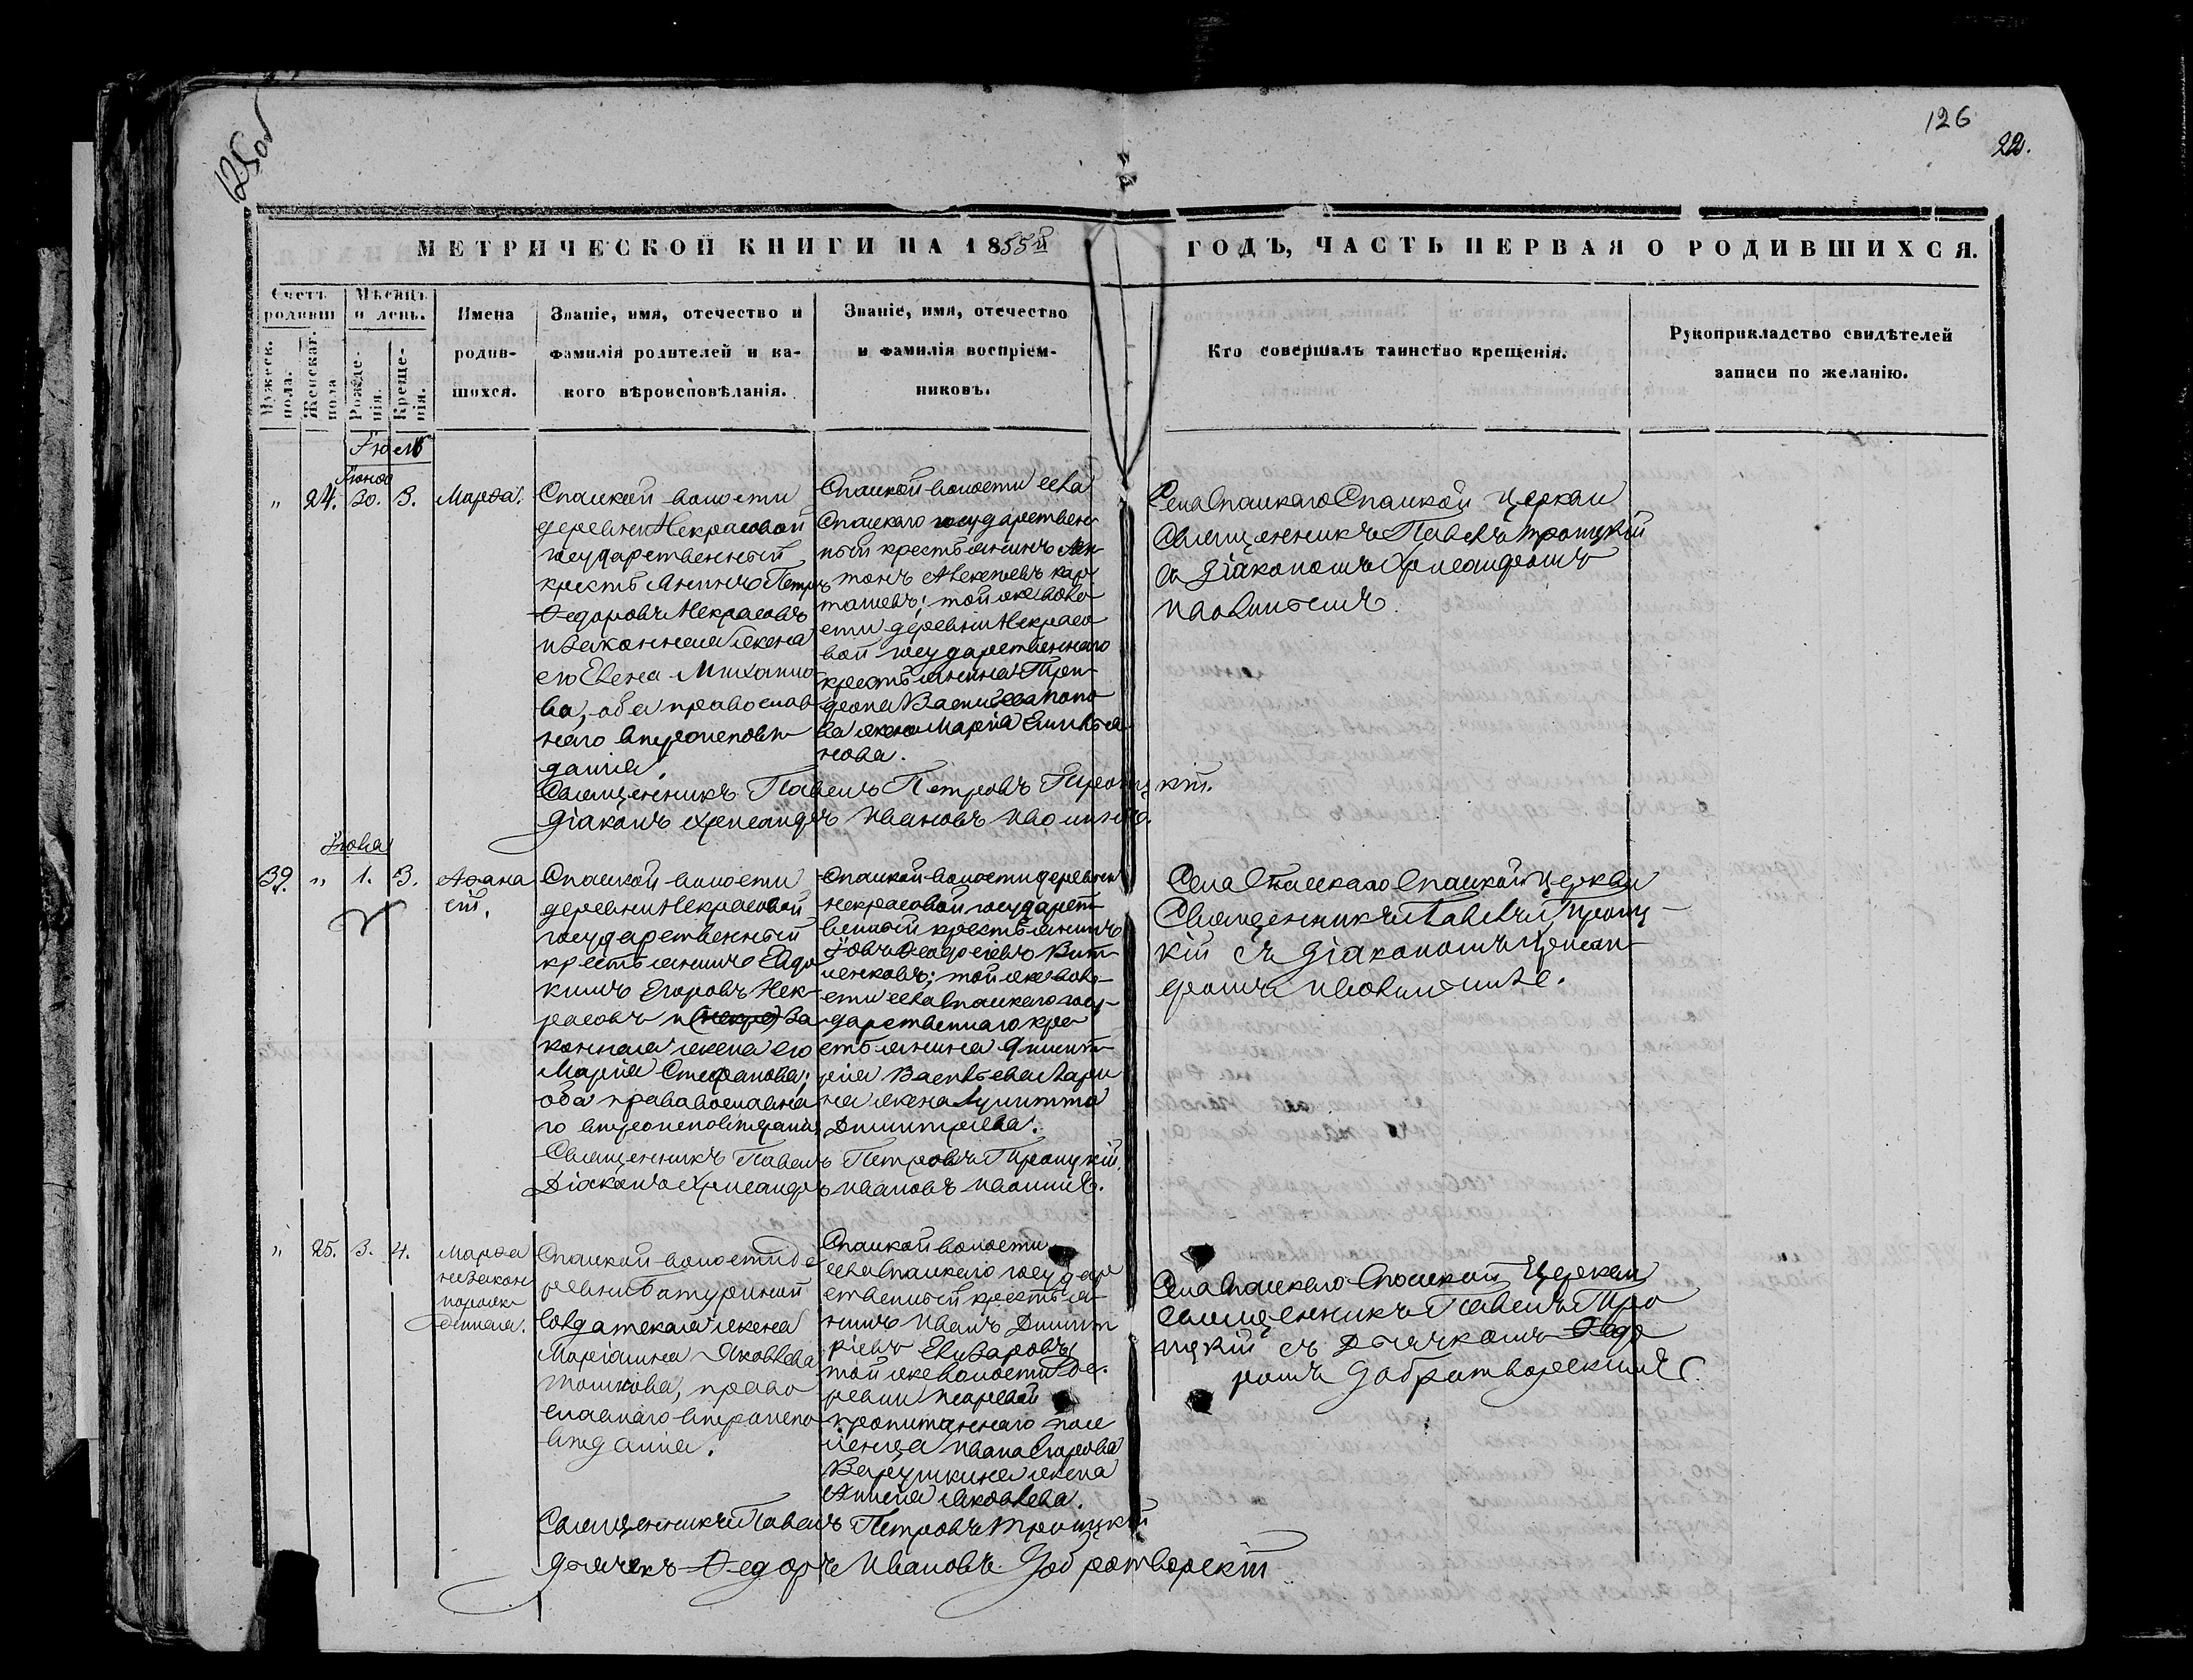 125 об
126
22.
МЕТРИЧЕСКОЙ КНИГИ НА 1855й
ГОДЪ, ЧАСТЬ ПЕРВАЯ О РОДИВШИХСЯ.
Счетъ родивш
Мѣсяцъ и день.
Мужеск. пола.
Женскаг. пола
Рожденія.
Крещенія.
Имена
родив-
шихся.
Званіе, имя, отечество и
фамилія родителей и ка-
кого вѣроисповѣданія.
Званіе, имя, отечество
и фамилія воспріем-
никовъ.
Кто совершалъ таинство крещенія.
Рукоприкладство свидѣтелей
записи по желанію.
Іюль
Іюня
„ 24. 30. 3. Марѳа.
Спаской волости
деревни Некрасовой
государственный
крестьянинъ Петръ
Ѳедоровъ Некрасовъ
и законная жена
его Елена Михаило
ва, оба православ
наго вѣроисповѣ
данія.
Спаской волости села
Спаскаго государствен
ный крестьянинъ Ан
тонъ Алексѣевъ Кар
ташевъ; той же воло
сти деревни Некрасо
вой государственнаго
крестьянина Три-
фона Васильева Попо
ва жена Марія Емилья
нова.
Села Спаскаго Спаской церкви
Священникъ Павелъ Троицкій
съ Діакономъ Хрисанфомъ
Священникъ Павелъ Петровъ Троицкій.
Діаконъ Хрисанфъ Ивановъ
Іюля
39. „ 1. 3. Аѳана
сій.
Спаской волости
деревни Некрасовой
государственный
крестьянинъ Евдо
кимъ Егоровъ Нек-
расовъ и (некра) за
конная жена его
Марія Стефанова;
оба православна
го вѣроисповѣданія
Спаской волости деревни
Некрасовой государст
венный крестьянинъ
Іовъ
той же воло-
сти села Спаскаго госу-
дарственнаго кре
стьянина Дмит
рія Васильева Лари
на жена
Дмитріева.
Села Спаскаго Спаской Церкви
Священникъ Павелъ Троиц-
кій съ Діакономъ Хрисан-
фомъ
Священникъ Павелъ Петровъ Троицкій,
Діаконъ Хрисанфъ Ивановъ
„ 25. 3. 4. Марѳа
незакон
норож-
денная.
Спаской волости де
ревни Батуриной
солдатская жена
Маріанна Яковлева
православнаго вѣроиспо
вѣданія.
Спаской волости
села Спаскаго государ
ственный крестья-
нинъ Иванъ Дмит
ріевъ Елизаровъ,
той же волости де-
ревни
пропитаннаго посе
ленца Ивана Егорова
жена
Яковлева.
Села Спаскаго Спаской Церкви
священникъ Павелъ Тро
ицкій съ Дьячкомъ Ѳедо
ромъ Добратворскимъ
Священникъ Павелъ Петровъ Троицкій
дьячекъ Ѳедоръ Ивановъ Добротворскій